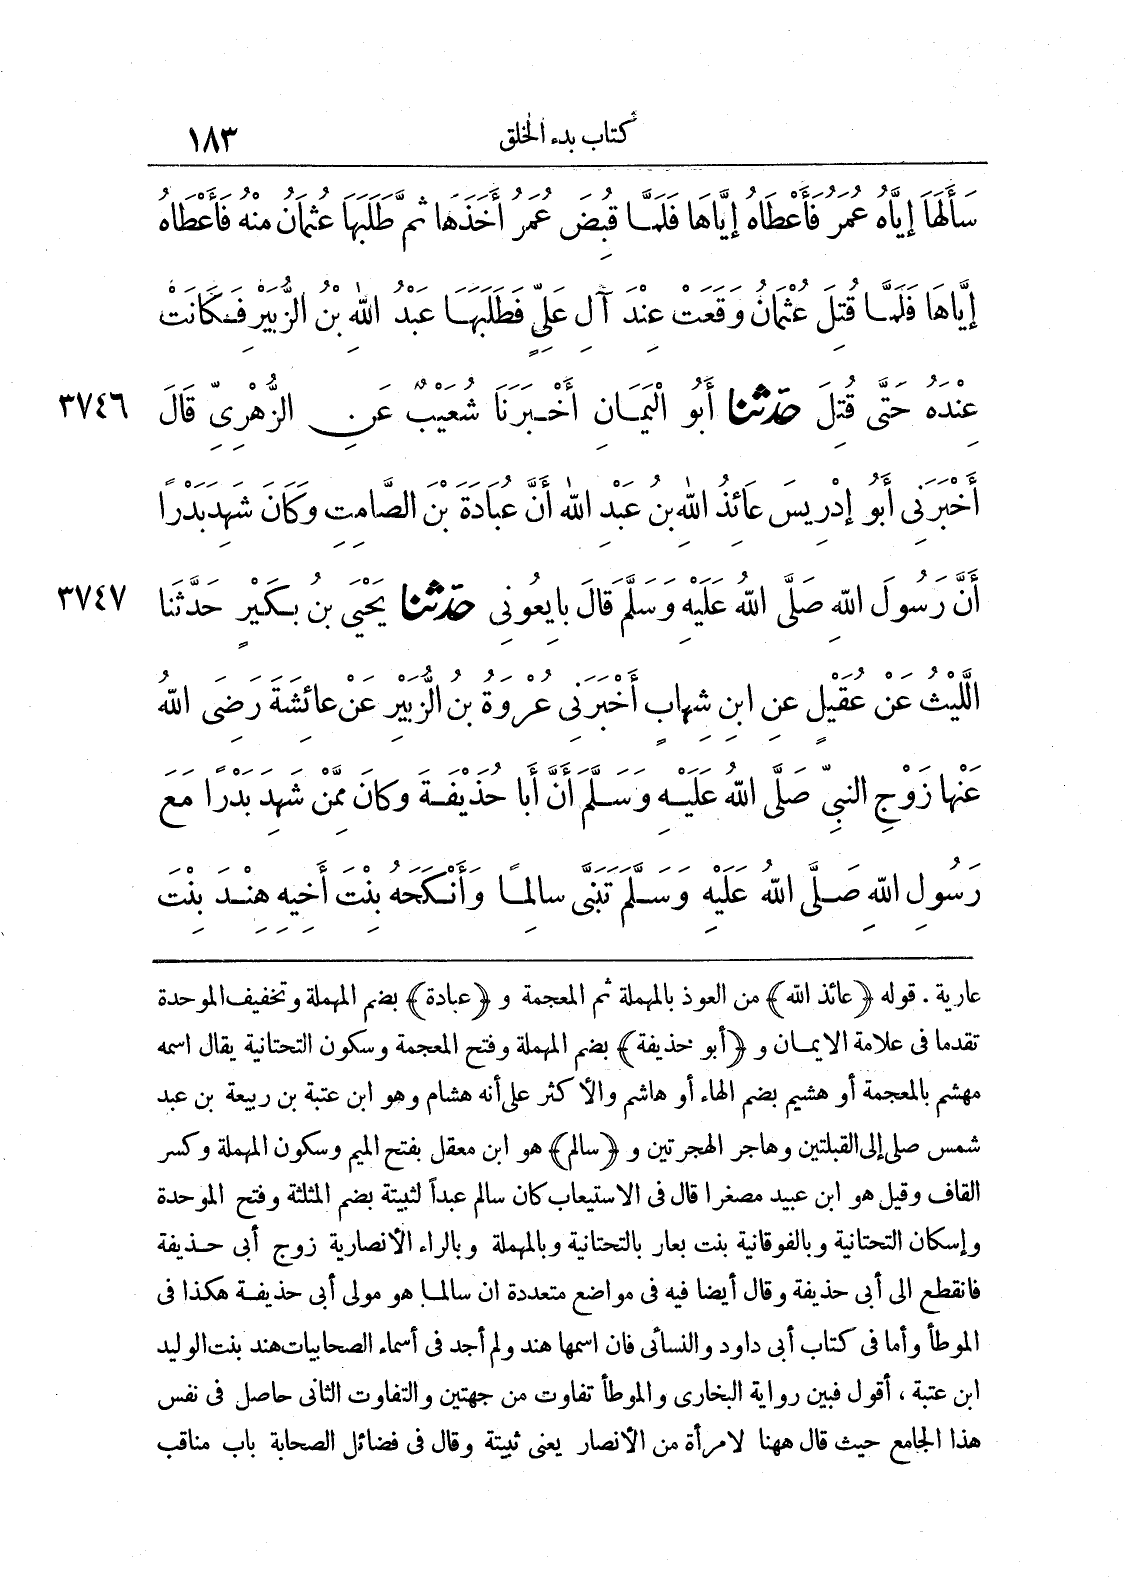 كتاب بدء الخلق ١٨٣
سَأَلَهَا إِيَّاهُ عُمَرُ فَأَعْطَاهُ إِيَّاهَا فَلَمَّا قُبِضَ عُمَرُ أَخَذَهَا ثُمَّ طَلَبَهَا عُثْمَانُ مِنْهُ فَأَعْطَاهُ
إِيَّاهَا فَلَمَّا قُتِلَ عُثْمَانُ وَقَعَتْ عِنْدَ آلِ عَلِيٍّ فَطَلَبَهَا عَبْدُ اللهِ بْنُ الزُّبَيْرِ فَكَانَتْ
عِنْدَهُ حَتَّى قُتِلَ حَدَّثَنَا أَبُو الْيَمَانِ أَخْبَرَنَا شُعَيْبٌ عَنِ الزُّهْرِيِّ قَالَ ٣٧٤٦
أَخْبَرَنِي أَبُو إِدْرِيسَ عَائِذُ اللهِ بْنُ عَبْدِ اللهِ أَنَّ عُبَادَةَ بْنَ الصَّامِتِ وَكَانَ شَهِدَ بَدْرًا
أَنَّ رَسُولَ اللهِ صَلَّى اللهُ عَلَيْهِ وَسَلَّمَ قَالَ بَايِعُونِي حَدَّثَنَا يَحْيَى بْنُ بُكَيْرٍ حَدَّثَنَا ٣٧٤٧
اللَّيْثُ عَنْ عُقَيْلٍ عَنِ ابْنِ شِهَابٍ أَخْبَرَنِي عُرْوَةُ بْنُ الزُّبَيْرِ عَنْ عَائِشَةَ رَضِيَ اللهُ
عَنْهَا زَوْجِ النَّبِيِّ صَلَّى اللهُ عَلَيْهِ وَسَلَّمَ أَنَّ أَبَا حُذَيْفَةَ وَكَانَ مِمَّنْ شَهِدَ بَدْرًا مَعَ
رَسُولِ اللهِ صَلَّى اللهُ عَلَيْهِ وَسَلَّمَ تَبَنَّى سَالِمًا وَأَنْكَحَهُ بِنْتَ أَخِيهِ هِنْدَ بِنْتَ
عارية . قوله ﴿عائذ الله﴾ من العوذ بالمهملة ثم المعجمة و ﴿عبادة﴾ بضم المهملة وتخفيف الموحدة
تقدما فى علامة الايمان و ﴿أبو حذيفة﴾ بضم المهملة وفتح المعجمة وسكون التحتانية يقال اسمه
مهشم بالمعجمة أو هشيم بضم الهاء أو هاشم والأكثر على أنه هشام وهو ابن عتبة بن ربيعة بن عبد
شمس صلى إلى القبلتين وهاجر الهجرتين و ﴿سالم﴾ هو ابن معقل بفتح الميم وسكون المهملة وكسر
القاف وقيل هو ابن عبيد مصغرا قال فى الاستيعاب كان سالم عبداً لثبيتة بضم المثلثة وفتح الموحدة
وإسكان التحتانية وبالفوقانية بنت يعار بالتحتانية وبالمهملة وبالراء الأنصارية زوج أبى حذيفة
فانقطع الى أبى حذيفة وقال أيضا فيه فى مواضع متعددة ان سالما هو مولى أبى حذيفة هكذا فى
الموطأ وأما فى كتاب أبى داود والنسائى فان اسمها هند ولم أجد فى أسماء الصحابيات هند بنت الوليد
ابن عتبة ، أقول فبين رواية البخارى والموطأ تفاوت من جهتين والتفاوت الثانى حاصل فى نفس
هذا الجامع حيث قال ههنا لامرأة من الأنصار يعنى ثبيتة وقال فى فضائل الصحابة باب مناقب